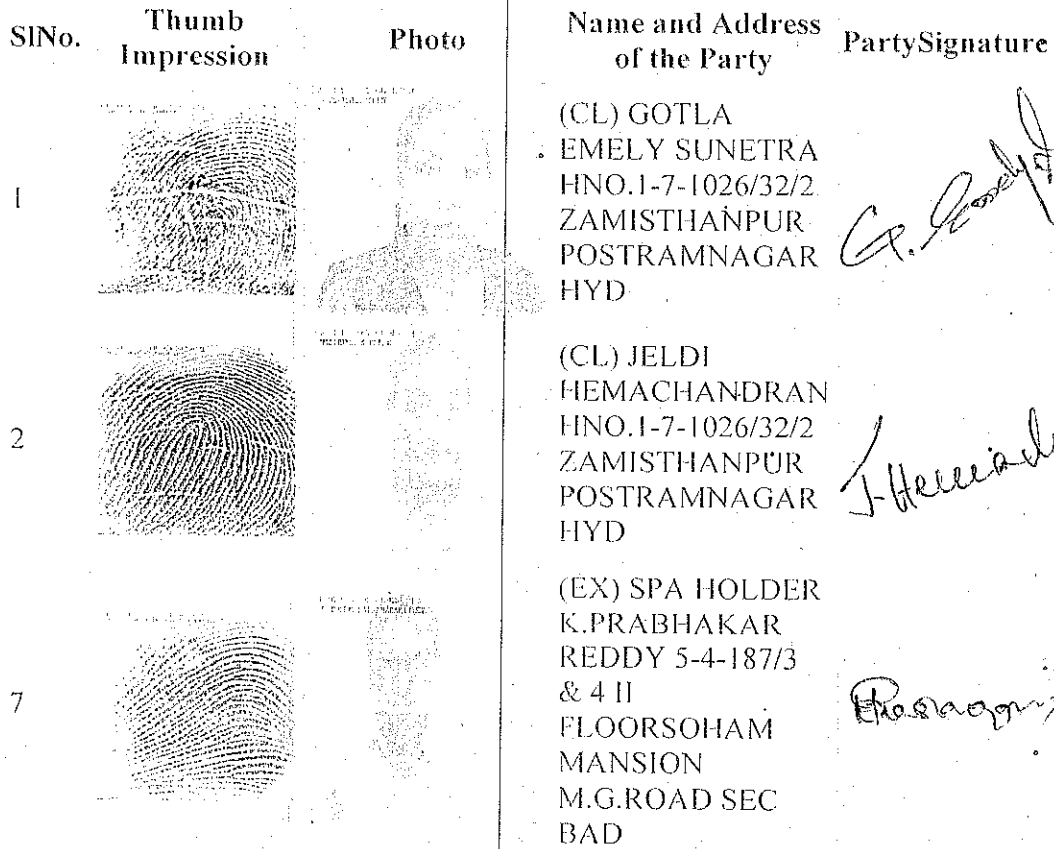 SlNo.
Thumb
Impression
Photo
Name and Address
of the Party
PartySignature
1
(CL) GOTLA
EMELY SUNETRA
HNO.1-7-1026/32/2
ZAMISTHANPUR
POSTRAMNAGAR
HYD
G.
2
(CL) JELDI
HEMACHANDRAN
HNO.1-7-1026/32/2
ZAMISTHANPUR
POSTRAMNAGAR
HYD
7
(EX) SPA HOLDER
K.PRABHAKAR
REDDY 5-4-187/3
& 4 II
FLOORSOHAM
MANSION
M.G.ROAD SEC
BAD